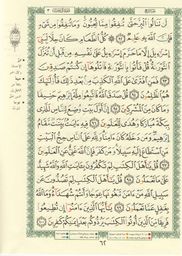 لَن تَنَالُوا۟ ٱلْبِرَّ حَتَّىٰ تُنفِقُوا۟ مِمَّا تُحِبُّونَ وَمَا تُنفِقُوا۟ مِن شَىْءٍ
فَإِنَّ ٱللَّهَ بِهِۦ عَلِيمٌ ٩٢ كُلُّ ٱلطَّعَامِ كَانَ حِلًّا لِّبَنِىٓ
إِسْرَٰٓءِيلَ إِلَّا مَا حَرَّمَ إِسْرَٰٓءِيلُ عَلَىٰ نَفْسِهِۦ مِن قَبْلِ أَن تُنَزَّلَ
ٱلتَّوْرَىٰةُ قُلْ فَأْتُوا۟ بِٱلتَّوْرَىٰةِ فَٱتْلُوهَآ إِن كُنتُمْ صَٰدِقِينَ ٩٣
فَمَنِ ٱفْتَرَىٰ عَلَى ٱللَّهِ ٱلْكَذِبَ مِنۢ بَعْدِ ذَٰلِكَ فَأُو۟لَٰٓئِكَ هُمُ
ٱلظَّٰلِمُونَ ٩٤ قُلْ صَدَقَ ٱللَّهُ فَٱتَّبِعُوا۟ مِلَّةَ إِبْرَٰهِيمَ حَنِيفًا
وَمَا كَانَ مِنَ ٱلْمُشْرِكِينَ ٩٥ إِنَّ أَوَّلَ بَيْتٍ وُضِعَ لِلنَّاسِ لَلَّذِى
بِبَكَّةَ مُبَارَكًا وَهُدًى لِّلْعَٰلَمِينَ ٩٦ فِيهِ ءَايَٰتٌۢ بَيِّنَٰتٌ مَّقَامُ
إِبْرَٰهِيمَ وَمَن دَخَلَهُۥ كَانَ ءَامِنًا وَلِلَّهِ عَلَى ٱلنَّاسِ حِجُّ ٱلْبَيْتِ
مَنِ ٱسْتَطَاعَ إِلَيْهِ سَبِيلًا وَمَن كَفَرَ فَإِنَّ ٱللَّهَ غَنِىٌّ عَنِ ٱلْعَٰلَمِينَ ٩٧
قُلْ يَٰٓأَهْلَ ٱلْكِتَٰبِ لِمَ تَكْفُرُونَ بِـَٔايَٰتِ ٱللَّهِ وَٱللَّهُ شَهِيدٌ
عَلَىٰ مَا تَعْمَلُونَ ٩٨ قُلْ يَٰٓأَهْلَ ٱلْكِتَٰبِ لِمَ تَصُدُّونَ عَن
سَبِيلِ ٱللَّهِ مَنْ ءَامَنَ تَبْغُونَهَا عِوَجًا وَأَنتُمْ شُهَدَآءُ وَمَا ٱللَّهُ
بِغَٰفِلٍ عَمَّا تَعْمَلُونَ ٩٩ يَٰٓأَيُّهَا ٱلَّذِينَ ءَامَنُوٓا۟ إِن تُطِيعُوا۟
فَرِيقًا مِّنَ ٱلَّذِينَ أُوتُوا۟ ٱلْكِتَٰبَ يَرُدُّوكُم بَعْدَ إِيمَٰنِكُمْ كَٰفِرِينَ ١٠٠
٦٢